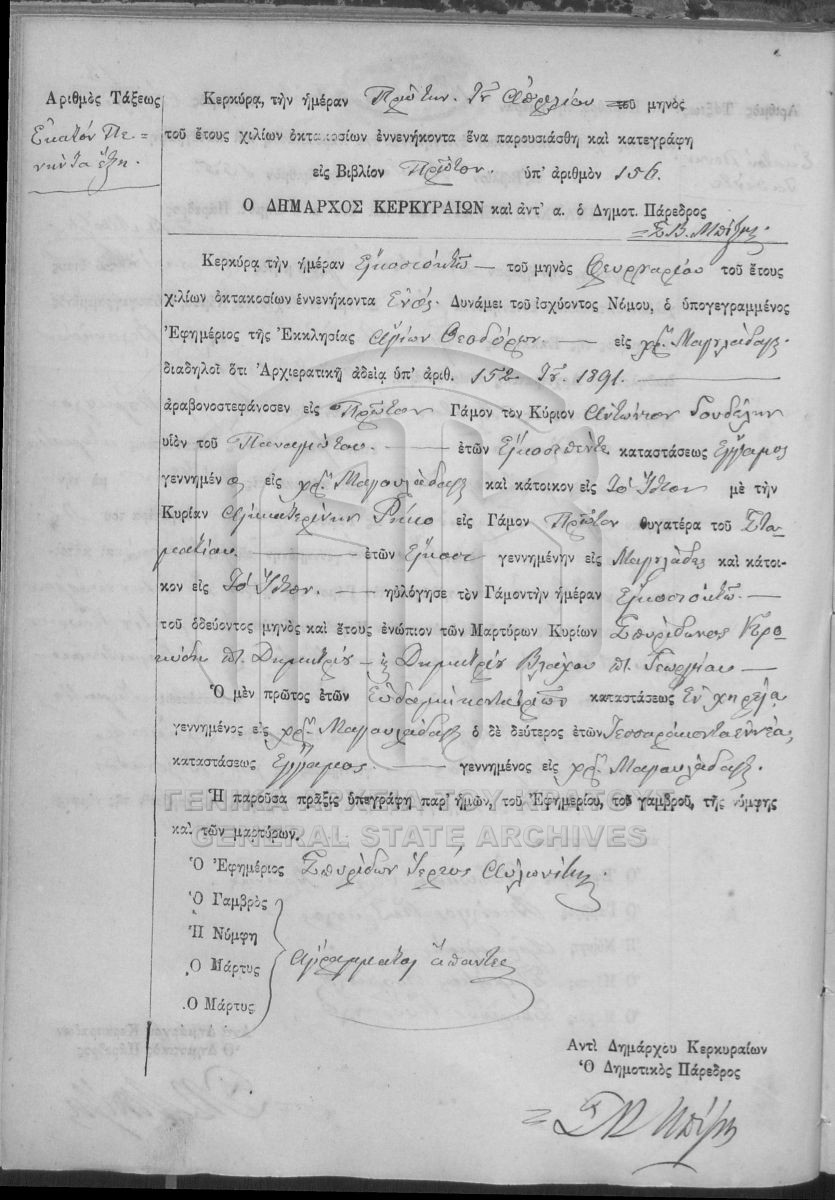 Ἀριθμὸς Τάξεως
Ἑκατὸν Πε-
νῆντα ἕξη.
Κερκύρᾳ, τὴν ἡμέραν Πρώτην. Ἀπριλίου τοῦ μηνὸς
τοῦ ἔτους χιλίων ὀκτακοσίων ἐννενήκοντα ἕνα παρουσιάσθη καὶ κατεγράφη
εἰς Βιβλίον Πρῶτον. ὑπ' ἀριθμὸν 156.
Ο ΔΗΜΑΡΧΟΣ ΚΕΡΚΥΡΑΙΩΝ καὶ ἀντ' α. ὁ Δημοτ. Πάρεδρος
Κερκύρᾳ τὴν ἡμέραν Εἰκοσιοκτῶ — τοῦ μηνὸς Φευρουαρίου τοῦ ἔτους
χιλίων ὀκτακοσίων ἐννενήκοντα Ἑνός. Δυνάμει τοῦ ἰσχύοντος Νόμου, ὁ ὑπογεγραμμένος
Ἐφημέριος τῆς Ἐκκλησίας Ἁγίων Θεοδόρων. — εἰς χρ. Μαγουλάδαις.
διαδηλοῖ ὅτι Ἀρχιερατικῇ ἀδείᾳ ὑπ' ἀριθ. 152 1891. —
ἀραβονοστεφάνοσεν εἰς Πρῶτον Γάμον τὸν Κύριον Ἀντώνιον Γουδέλην
υἱὸν τοῦ Παναγιώτου. — ἐτῶν Εἰκοσιπέντε καταστάσεως Ἔγγαμος
γεννημέν ος εἰς χρ. Μαγουλάδαις καὶ κάτοικον εἰς Τὸ Ἴδιον μὲ τὴν
Κυρίαν Αἰκατερίνην Ρίκο εἰς Γάμον Πρῶτον θυγατέρα τοῦ Στα-
ματίου. — ἐτῶν Εἴκοσι γεννημένην εἰς Μαγουλάδες καὶ κάτοι-
κον εἰς Τὸ Ἴδιον. — ηὐλόγησε τὸν Γάμον τὴν ἡμέραν Εἰκοσιοκτῶ. —
τοῦ ὁδεύοντος μηνὸς καὶ ἔτους ἐνώπιον τῶν Μαρτύρων Κυρίων Σπυρίδωνος
Δημητρίου — Δημητρίου Βλάχου Γεωργίου —
Ὁ μὲν πρῶτος ἐτῶν Ἑβδομήκοντα καταστάσεως Ἐν χηρείᾳ
γεννημένος εἰς χρ. Μαγουλάδαις ὁ δὲ δεύτερος ἐτῶν Τεσσαράκοντα ἐννέα,
καταστάσεως Ἔγγαμος. — γεννημένος εἰς χρ. Μαγουλάδαις.
Ἡ παροῦσα πρᾶξις ὑπεγράφη παρ' ἡμῶν, τοῦ Ἐφημερίου, τοῦ γαμβροῦ, τῆς νύμφης
καὶ τῶν μαρτύρων.
ΓΕΝΙΚΑ ΑΡΧΕΙΑ ΤΟΥ ΚΡΑΤΟΥΣ
GENERAL STATE ARCHIVES
Ὁ Ἐφημέριος Σπυρίδων Ἱερεὺς Αὐλωνίτης
Ὁ Γαμβρὸς
Ἡ Νύμφη
Ὁ Μάρτυς Ἀγράμματοι ἅπαντες
Ὁ Μάρτυς
Αντὶ Δημάρχου Κερκυραίων
Ὁ Δημοτικὸς Πάρεδρος